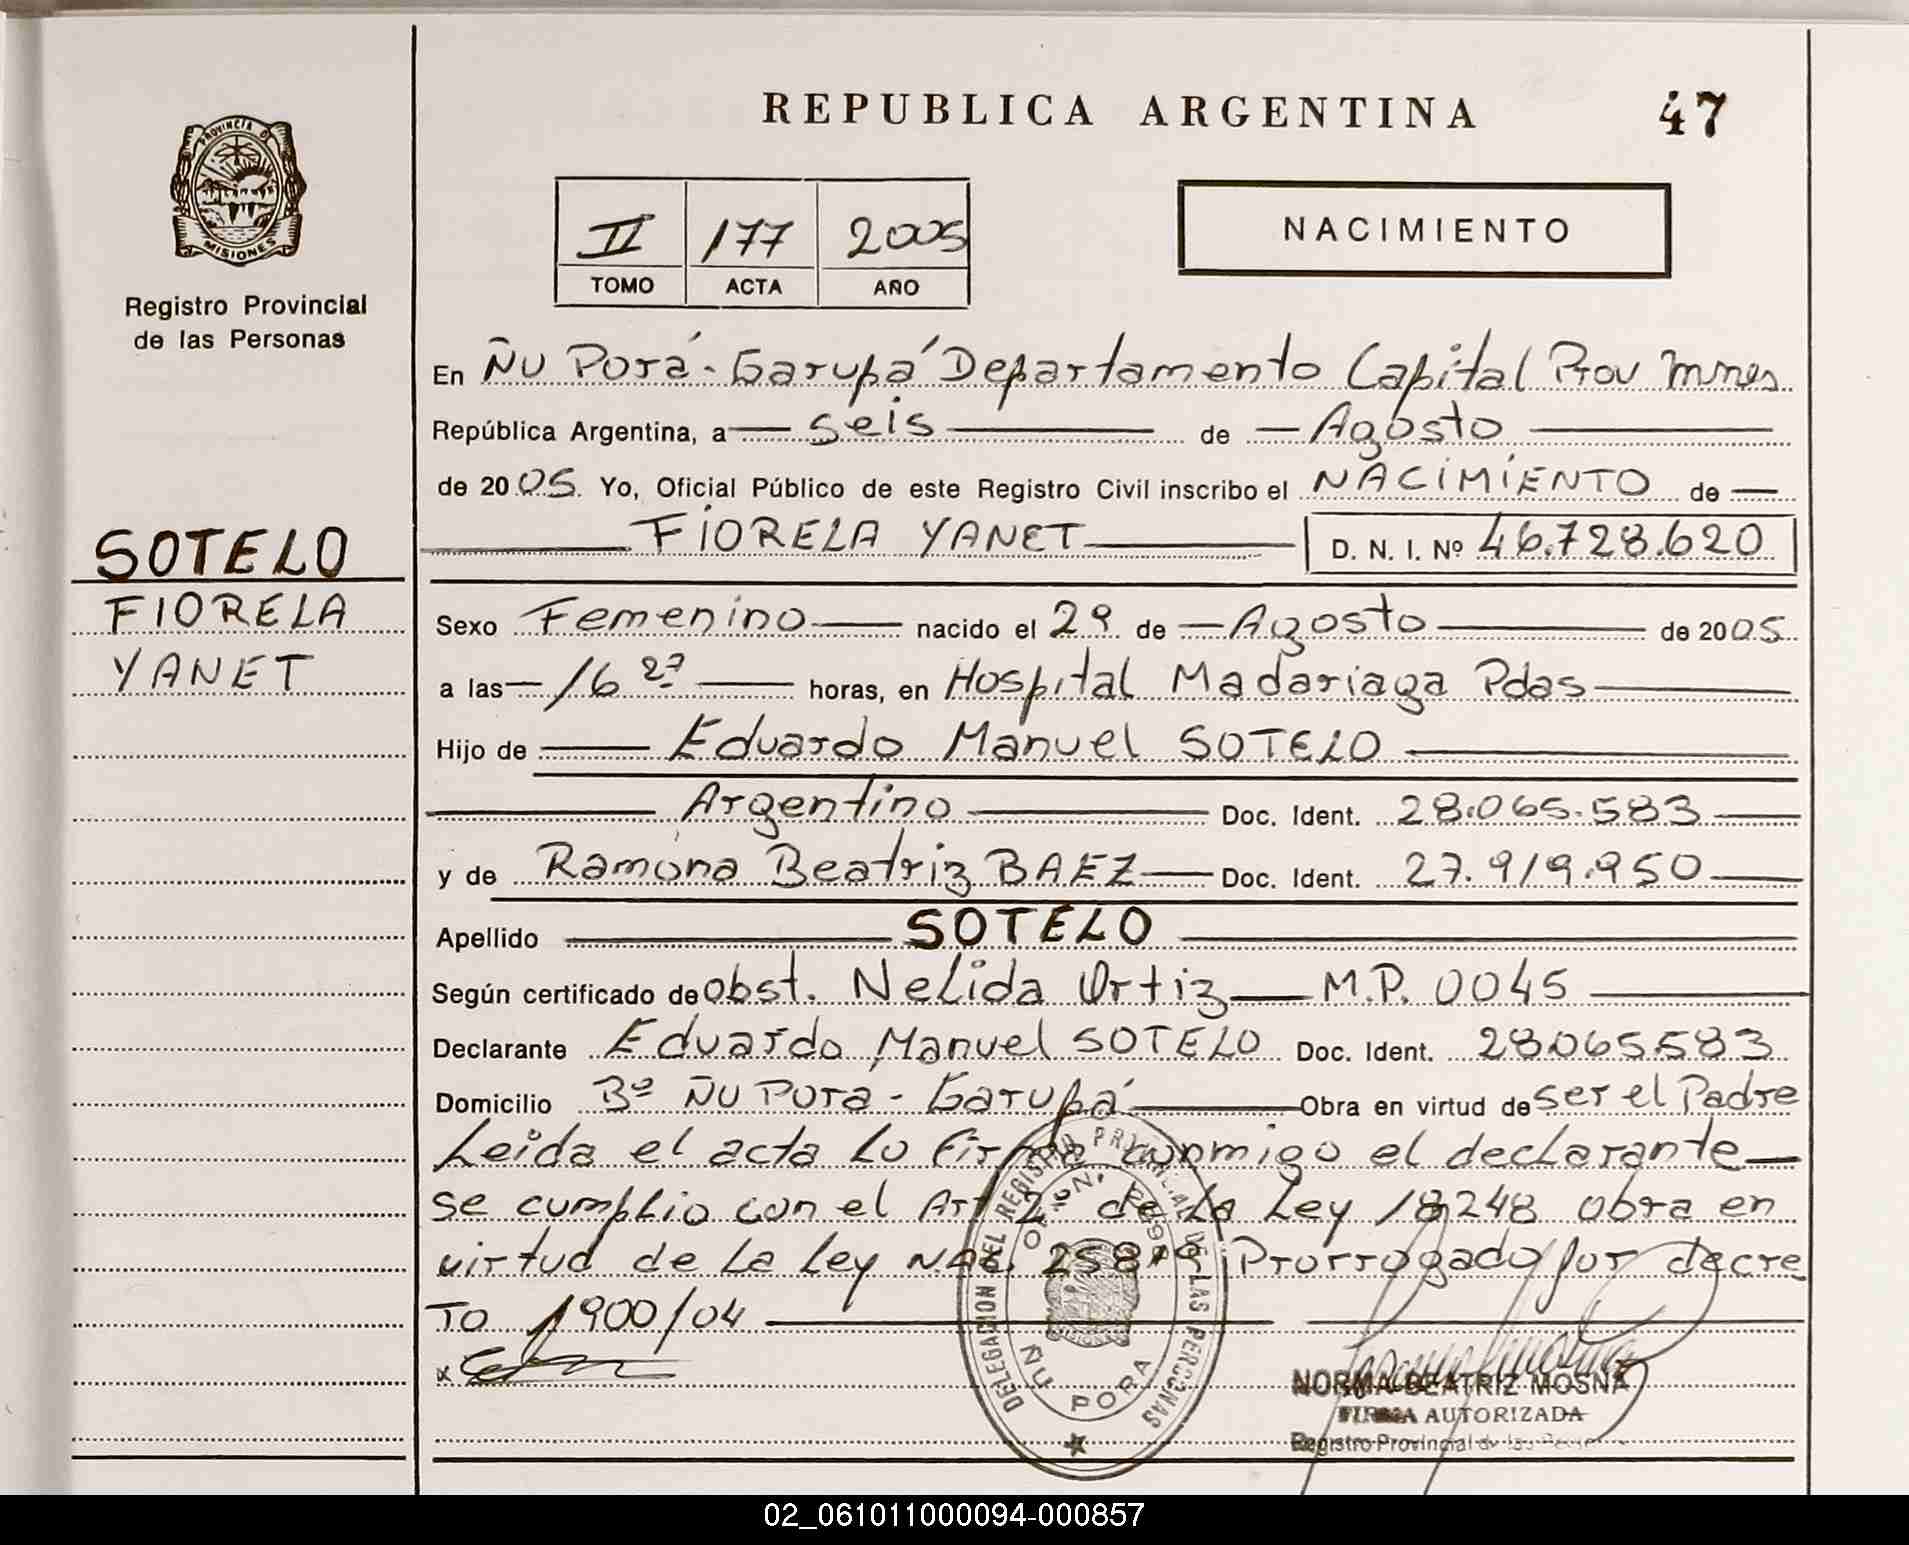 REPUBLICA ARGENTINA
47
PROVINCIA DE
MISIONES
Registro Provincial
de las Personas
II 177 2005
TOMO ACTA AÑO
NACIMIENTO
En Ñu Porá - Garupá Departamento Capital Prov Mnes
República Argentina, a seis de Agosto
de 2005 Yo, Oficial Público de este Registro Civil inscribo el NACIMIENTO de
FIORELA YANET D. N. I. Nº 46.728.620
SOTELO
FIORELA
YANET
Sexo Femenino nacido el de Agosto de 2005
a las 16 horas, en Hospital Madariaga Pdas
Hijo de Eduardo Manuel SOTELO
Argentino Doc. Ident. 28.065.583
y de Ramona Beatriz BAEZ Doc. Ident. 27.919.950
Apellido SOTELO
Según certificado de obst. Nelida Ortiz M.P. 0045
Declarante Eduardo Manuel SOTELO Doc. Ident. 28065583
Domicilio Bº Ñu Porá - Garupá Obra en virtud de ser el Padre
Leida el acta lo firma conmigo el declarante
se cumplio con el Art 2º de la Ley 18248 obra en
virtud de la ley Nac. 25819 Prorrogado por decre
To 1900/04
DELEGACION DEL REGISTRO PROVINCIAL DE LAS PERSONAS
ÑU PORA
NORMA BEATRIZ MOSNA
FIRMA AUTORIZADA
Registro Provincial de las
02_061011000094-000857